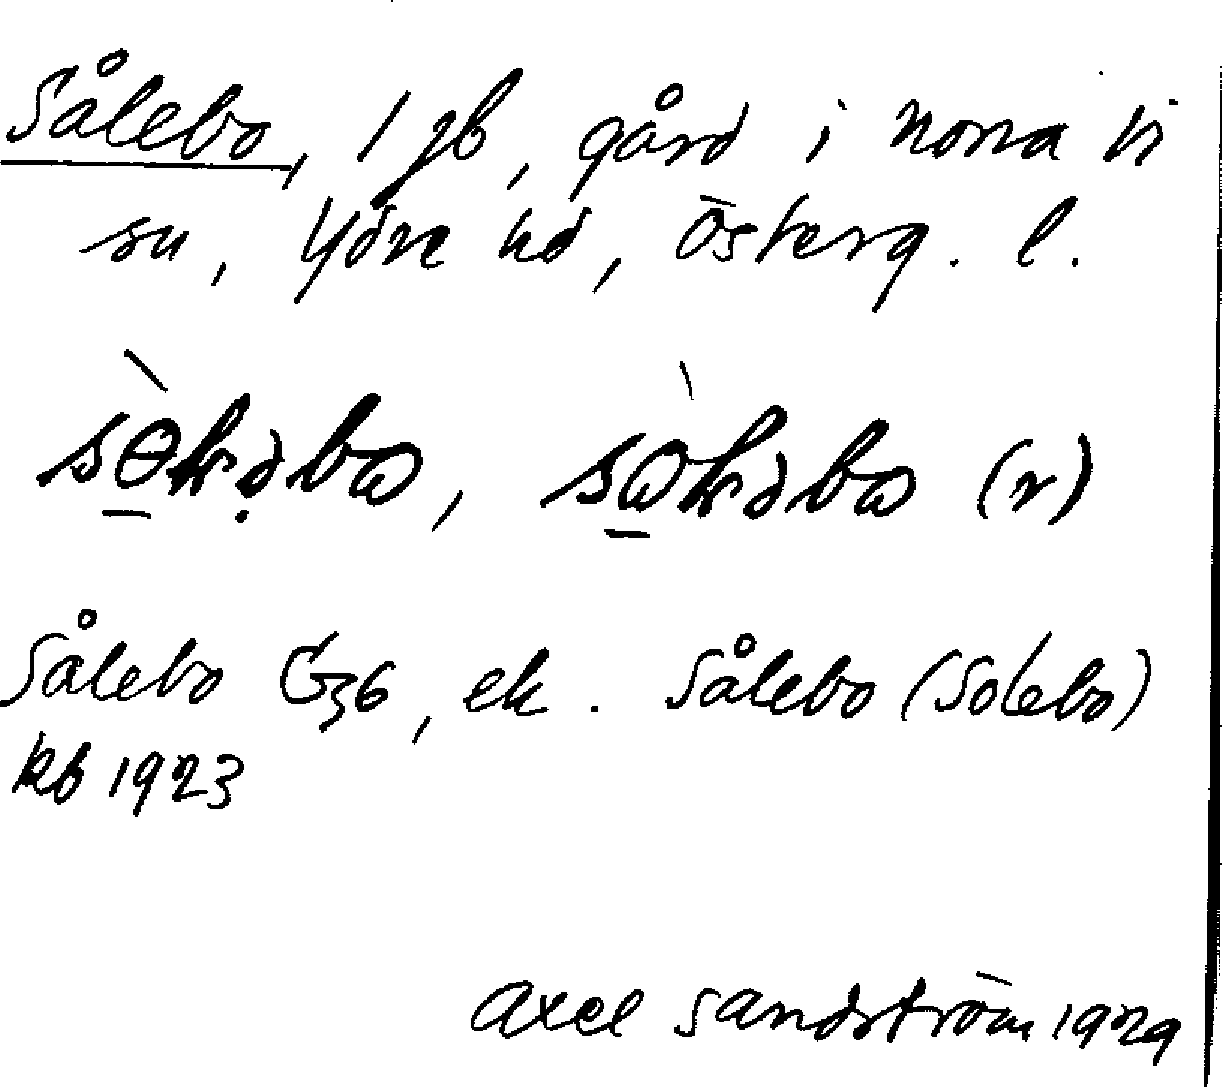 Sålebo, 1 jb, gård i norra Vi
sn, Ydre hd, Österg. l.
Sålebo G36, ek. Sålebo (Solebo)
kb 1923
Axel Sandström 1929